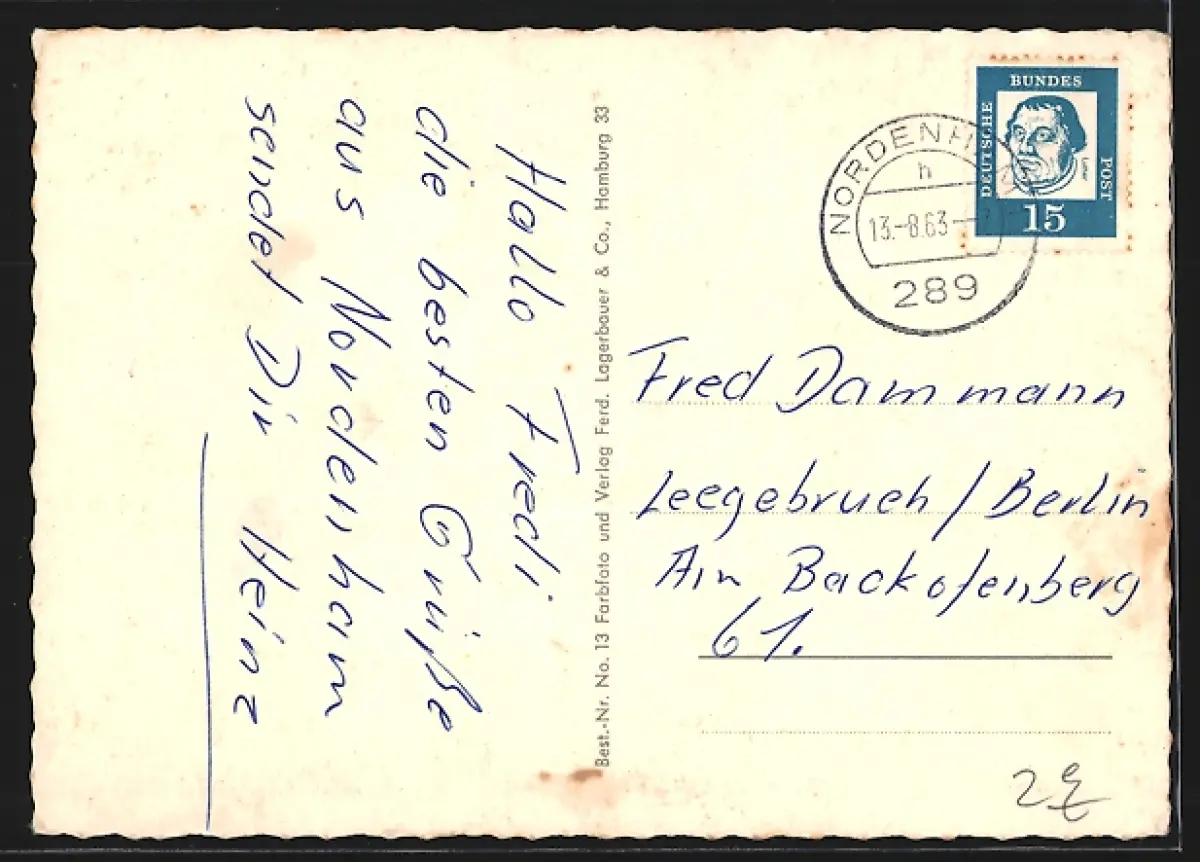 Hallo Fredi
die besten Grüße
aus Nordenham
sendet Dir Heinz
Best.-Nr. No. 13 Farbfoto und Verlag Ferd. Lagerbauer & Co., Hamburg 33
NORDENH
h
13.-8.63-
289
DEUTSCHE
BUNDES
POST
Luther
15
Fred Dammann
Leegebruch/Berlin
Am Backofenberg
61.